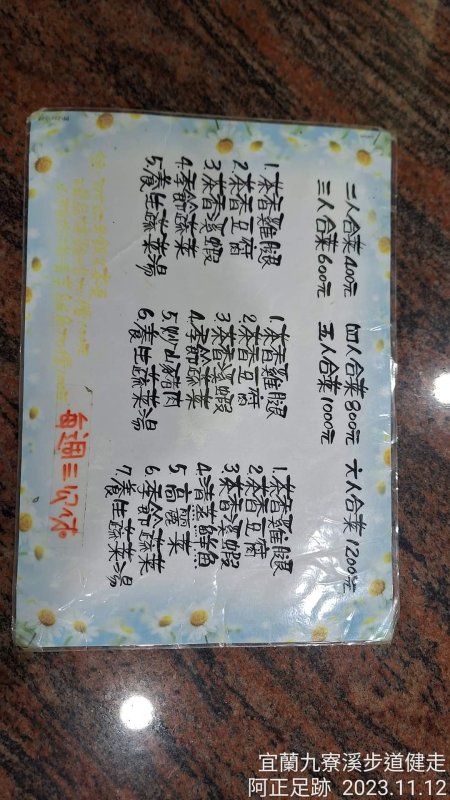 二人合菜400元 四人合菜800元 六人合菜1200元
三人合菜600元 五人合菜1000元
1.茶香雞腿
2.茶香豆腐
3.茶香溪蝦
4.季節蔬菜
5.養生蔬菜湯
1.茶香雞腿
2.茶香豆腐
3.茶香溪蝦
4.季節蔬菜
5.炒山豬肉
6.養生蔬菜湯
1.茶香雞腿
2.茶香豆腐
3.茶香溪蝦
4.清蒸鮮魚
5.高麗菜
6.季節蔬菜
7.養生蔬菜湯
每週三公休
宜蘭九寮溪步道健走
阿正足跡 2023.11.12